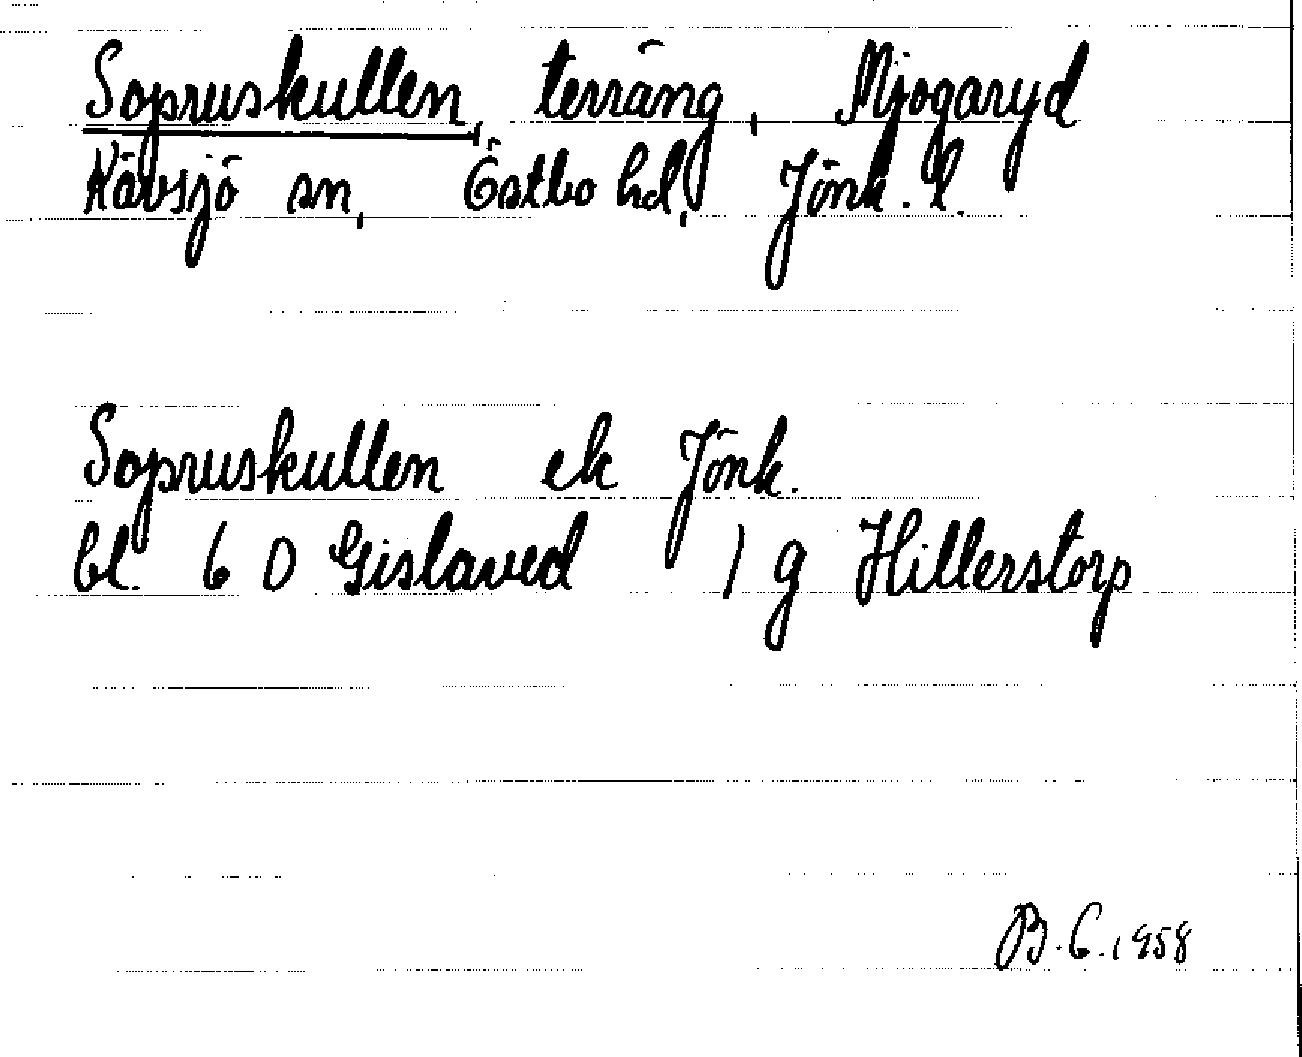 Sopruskullen, terräng, Mjogaryd
Kävsjö sn, Östbo hd, Jönk. l.
Sopruskullen ek Jönk.
bl. 6 D Gislaved 1 g Hillerstorp
B. C. 1958